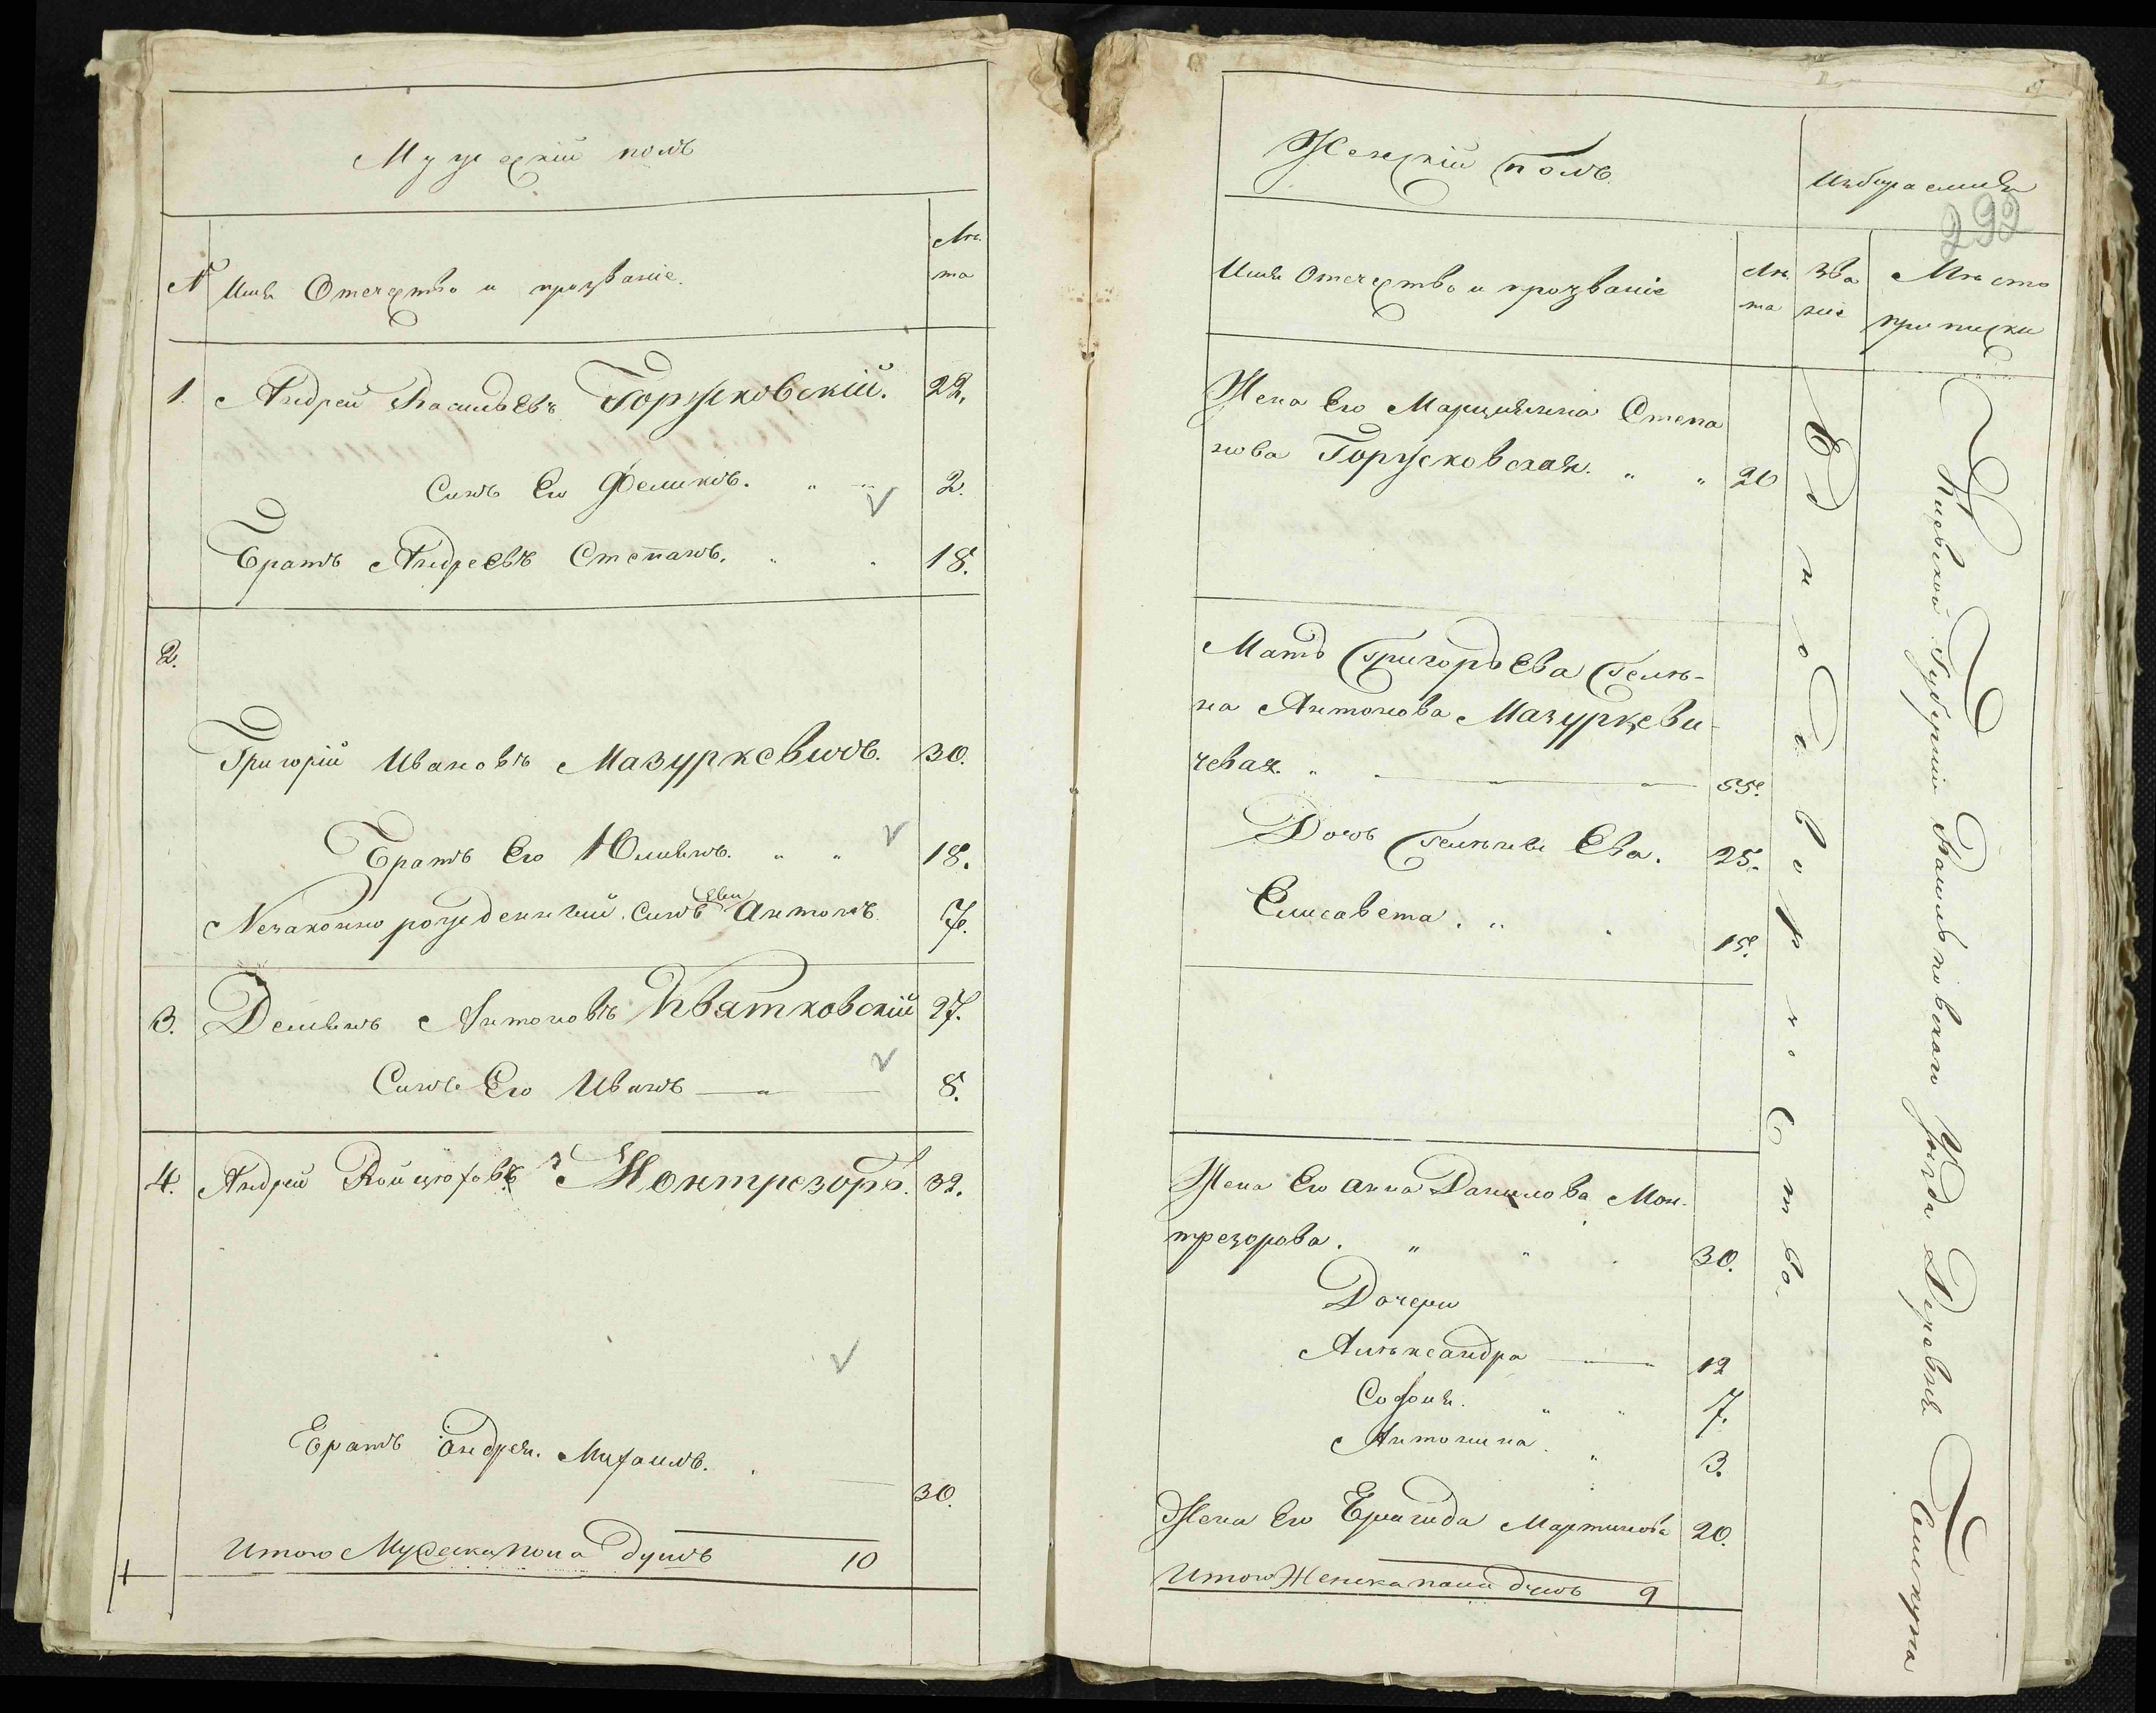 Мужескій полъ
№ Имя Отечество и прозваніе.
Лѣ
та
1. Андрей Васильевъ Горжковскій. 22.
Сынъ Его Феликсъ. " " 2.
Братъ Андреевъ Степанъ. " 18.
2.
Григорій Ивановъ Мазуркевичъ. 30.
Братъ Его Юліянъ. " " 18.
Евы
Незаконно рожденный сынъ Антонъ. 7.
3. Демянъ Антоновъ Квятковскій 27.
Сынъ Его Иванъ — " — 8.
4. Андрей Войцѣховъ Монтрезоръ. 32.
Братъ Андрея. Михаилъ. 30.
Итого Мужеска пола душъ 10
Женскій полъ.
Избираемыя
292
Имя Отечество и прозваніе
Лѣ
та
Зва
ніе
Мѣсто
приписки
Жена Его Марціянна Степа
нова Горжсковская. " " 20
Мать Григорьева Гелѣ-
на Антонова Мазуркеви-
чевая. " — 55.
Дочь Гелѣны Ева. 25.
Елисавета. " 15.
Жена Его Анна Данилова Мон-
трезорова. " " 30.
Дочери
Александра — 12
Софія. " " 7.
Антонина. " 3.
Жена Его Бригида Мартинова 20.
Итого Женска пола душъ 9
Однодворчество.
Кіевской Губерніи Васильковского Уѣзда Деревня